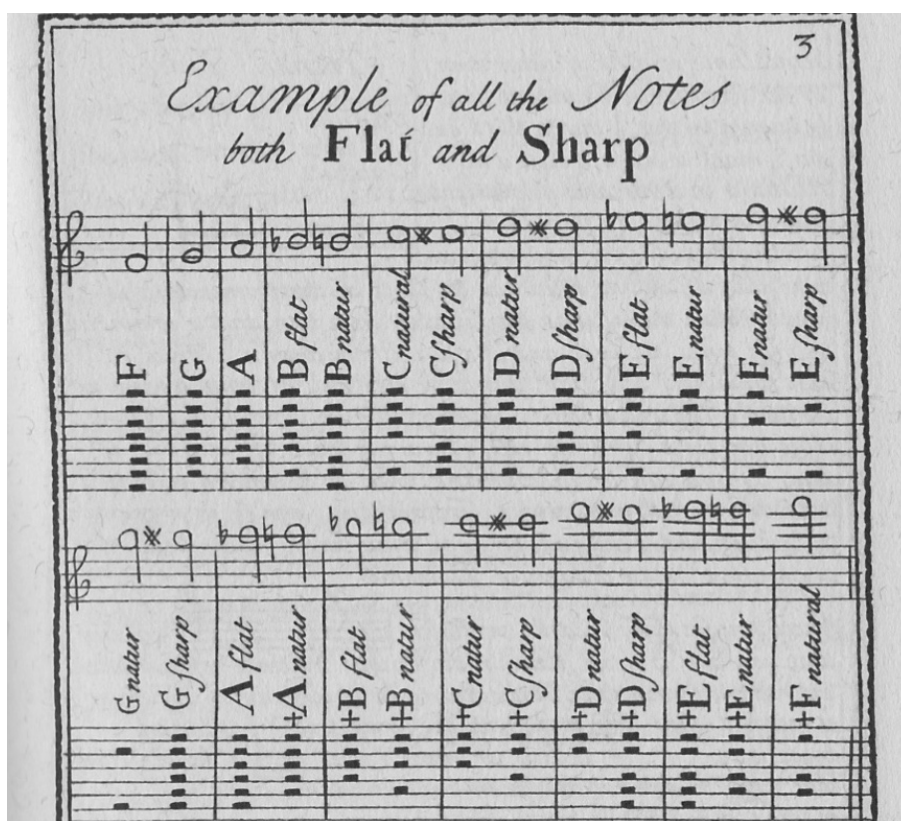 3
Example of all the Notes
both Flat and Sharp
F G A B flat B natur C natural C ſharp D natur D ſharp E flat E natur F natur E ſharp
G natur G ſharp A flat +A natur +B flat +B natur +C natur +C ſharp +D natur +D ſharp +E flat +E natur +F natural